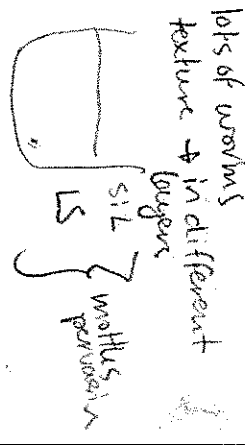 lots of worms
texture + in different
layers
SiL
LS
mottles